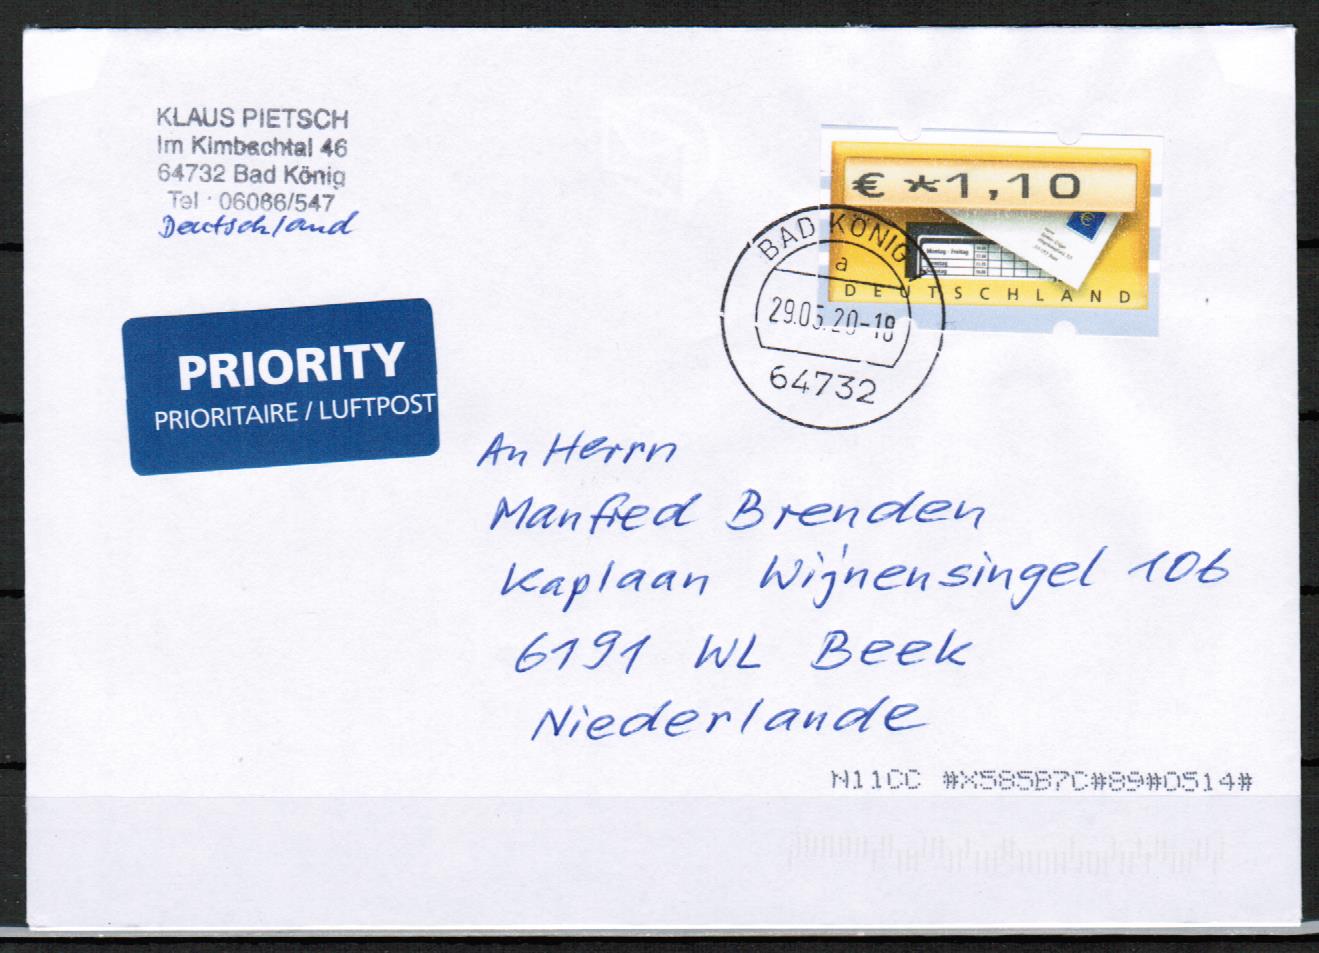 KLAUS PIETSCH
Im Kimbachtal 46
64732 Bad König
Tel : 06066/547
Deutschland
€ *1,10
Montag - Freitag
DEUTSCHLAND
BAD KÖNIG
a
29.05.20-18
64732
PRIORITY
PRIORITAIRE / LUFTPOST
An Herrn
Manfred Brenden
Kaplaan Wijnensingel 106
6191 WL Beek
Niederlande
N11CC #X585B7C#89#0514#